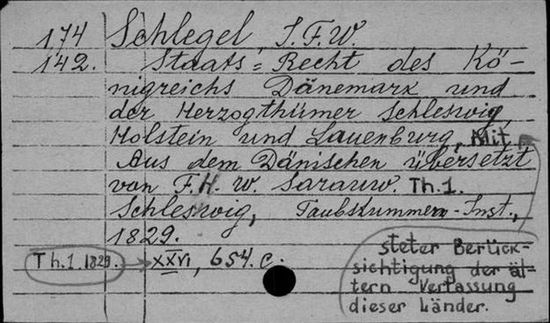 174 Schlegel, I.F.W.
142. Staats=Recht des Kö-
nigreichs Dänemark und
der Herzogthümer Schleswig,
Holstein und Lauenburg, Mit
Aus dem Dänischen übersetzt
von F.H.W. Sarauw. Th.1.
Schleswig, Taubstummen-Inst.,
1829.
Th.1.1829. XXVI, 654.c.
steter Berück-
sichtigung der äl-
tern Verfassung
dieser Länder.